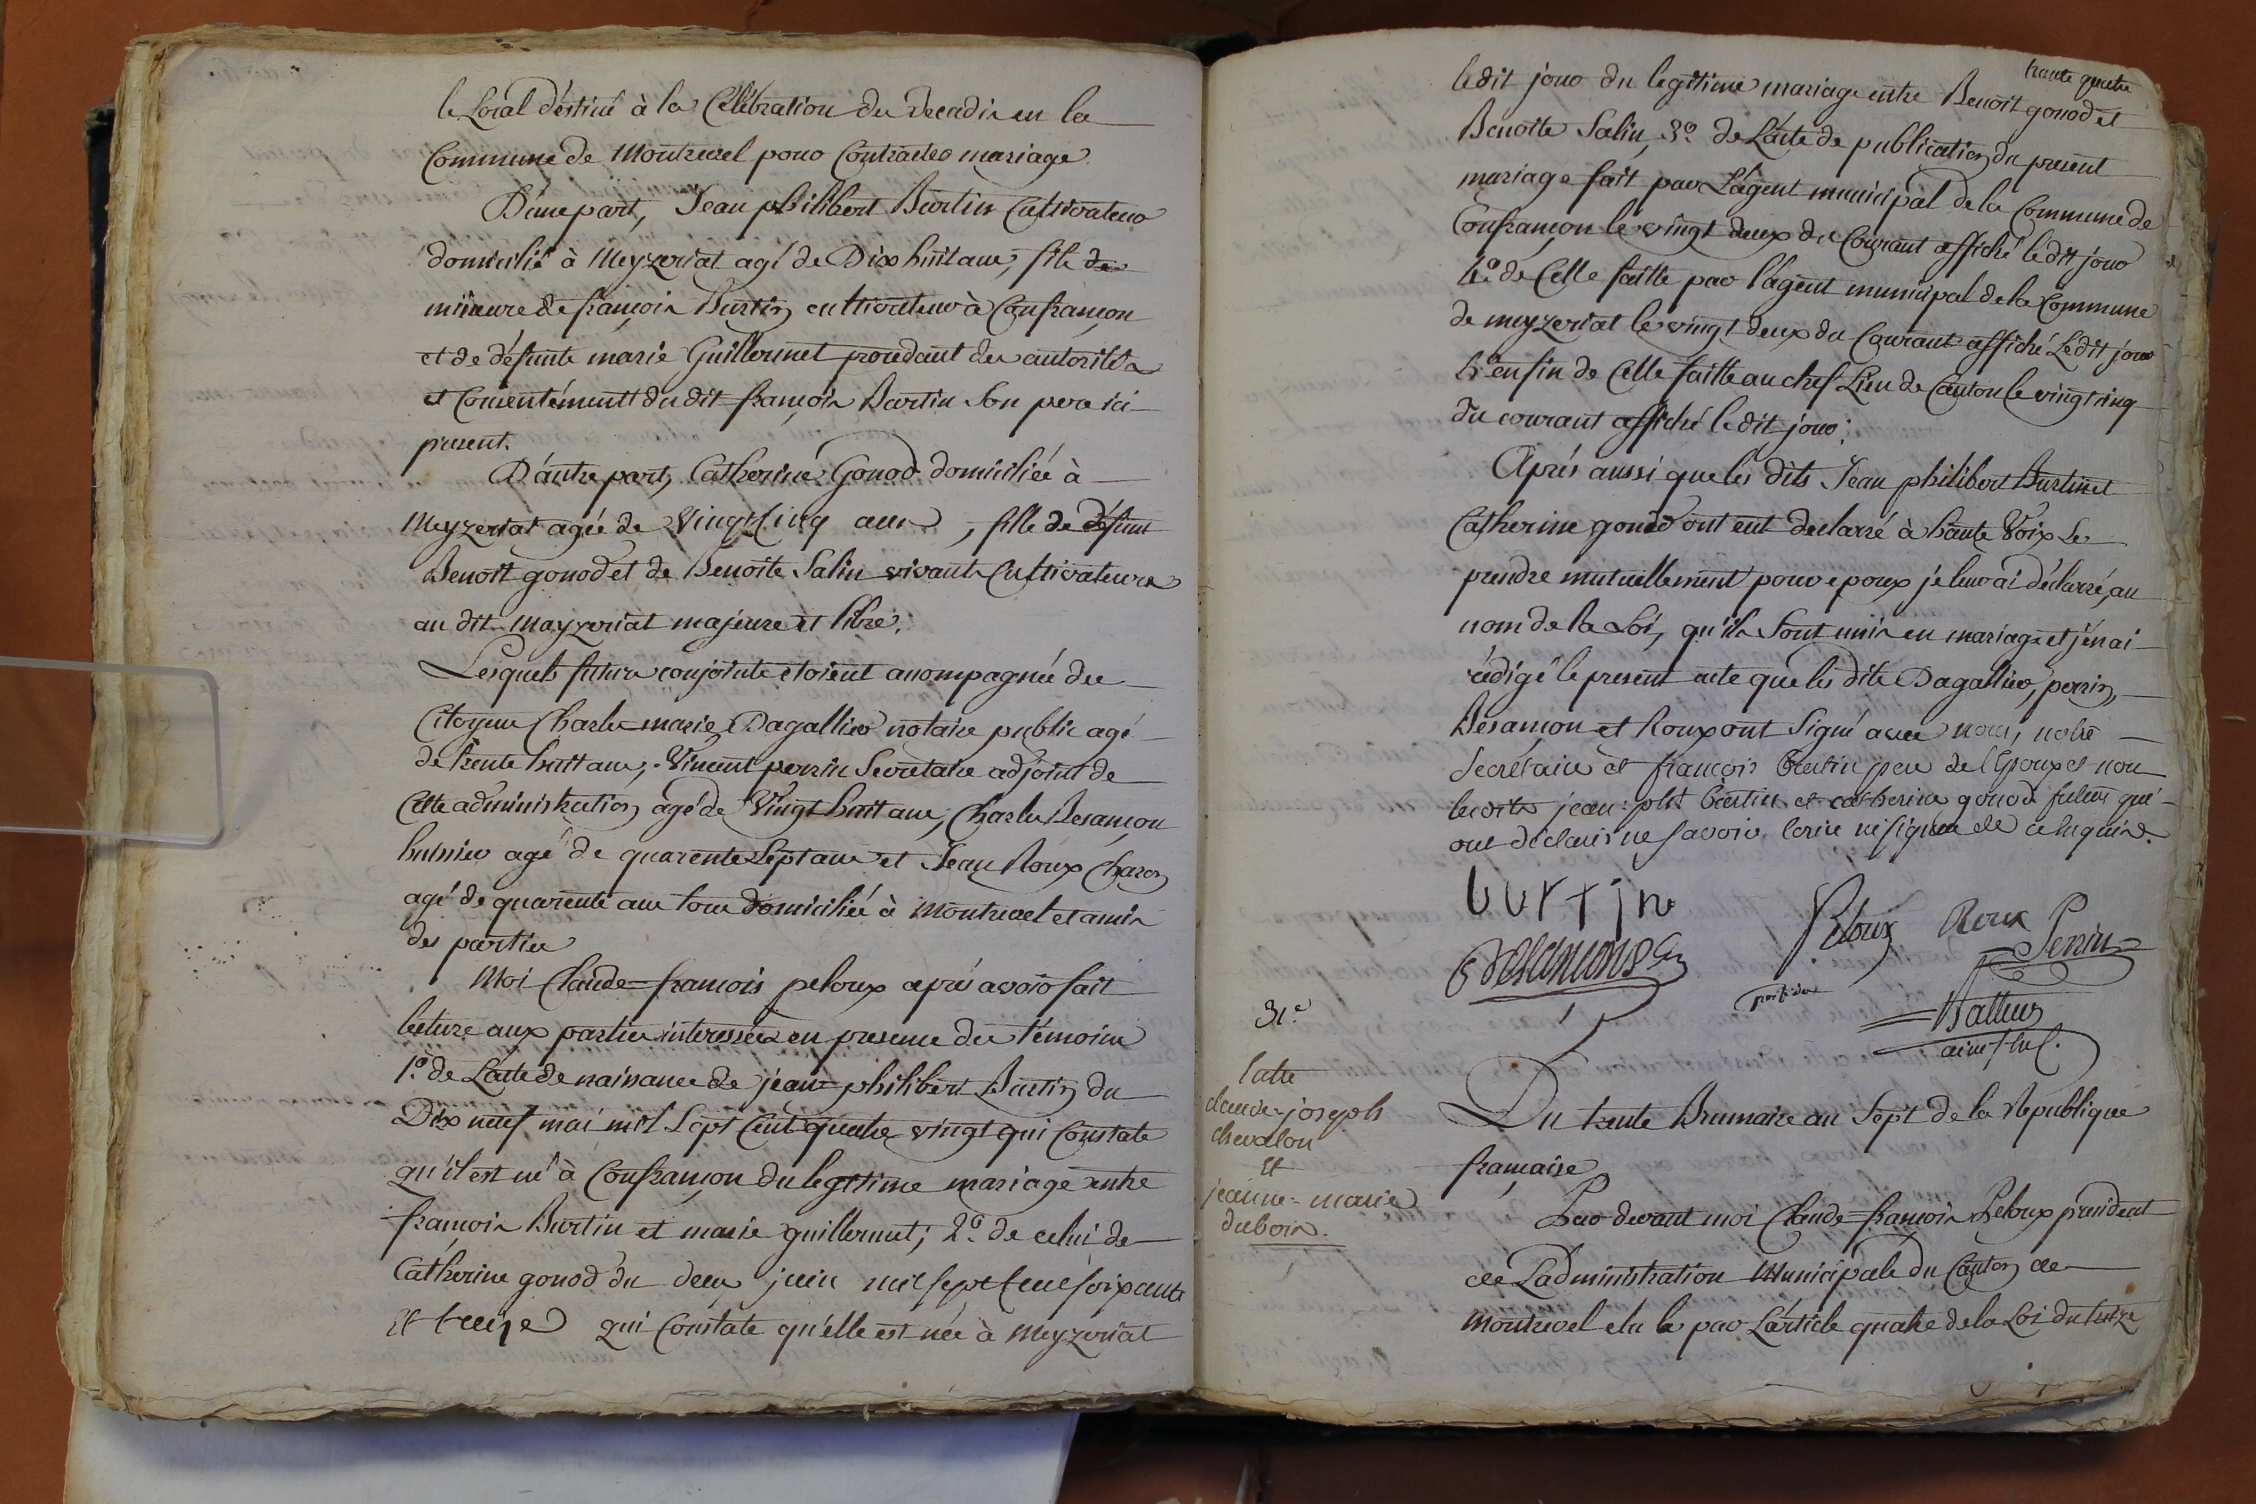 le Local déstiné à la Célébration du Decadi en la
Commune de Montrevel pour Contracter mariage
D'une part, Jean philibert Burtin Cultivateur
domicilié à Meyzeriat agé de Dix huit ans, fils de
mineure de françois Burtin cultivateur à Confrançon
et de défunte marie Guillermet procedant des autorités
et Consentémentt du dit françois Burtin Son pere ici
present.
D'autre part, Catherine Gonod domiciliée à
Meyzeriat agée de Vingt Cinq ans, fille de défunt
Benoit gonod et de Benoite Salin vivants Cultivateurs
au dit Mayzeriat majeure et libre,
Lesquels futurs conjoints etoient accompagnés des
Citoyens Charles marie Dagallier notaire public agé
de trente huit ans, Vincent perrin Secretaire adjoint de
Cette administration agé de Vingt huit ans, Charles Besançon
huissier agé de quarente Sept ans et Jean Roux Charon
agé de quarente ans tous domiciliés à Montrevel et amis
des parties
Moi Claude=francois peloux aprés avoir fait
lecture aux parties interessées en presence des témoins
1.º de Lacte de naissance de jean=philibert Burtin du
Dix neuf mai mil Sept Cent quatre vingt qui Constate
qu'il est né à Confrançon du legitime mariage entre
françois Burtin et marie guillermet; 2º. de celui de
Catherine gonod du deux juin mil sept Cent soixante
et treize qui Constate qu'elle est née à Meyzeriat
trente quatre
ledit jour du legitime mariage entre Benoit gonod et
Benoite Salin, 3º. de L'acte de publication du present
mariage fait par L'agent municipal de la Commune de
Confrançon le vingt deux du Courant affiché le dit jour
4º. de Celle faitte par l'agent municipal de la Commune
de meyzeriat le vingt deux du Courant affiché Ledit jour
5º enfin de Celle faitte au chef Lieu de Canton le vingt cinq
du courant affiché le dit jour;
Aprés aussi que les dits Jean philibert Burtin et
Catherine gonod ont eut declarré à haute Voix Se
prendre mutuellement pour epoux je leur ai déclarré, au
nom de la Loi, qu'ils Sont unis en mariage et j'en ai
rédigé le present acte que les dits Dagallier, perrin,
Besançon et Roux ont Signé avec nous, notre
Secrétaire et françois Burtin pere de l'Epoux et non
lesdits jean=phlt Burtin et catherine gonod futurs qui
ont déclarés ne savoir Ecrire ni signer de ce enquis.
burtin
Peloux
Roux
Perrin
Besancons
31.e
latre
claude-joseph
chevalon
Et
jeanne-marie
dubois.
Du trente Brumaire an Sept de la Republique
française
Par devant moi Claude=françois Peloux president
de Ladministration Municipale du Canton de
Montrevel elu par L'article quatre de la Loi du treize